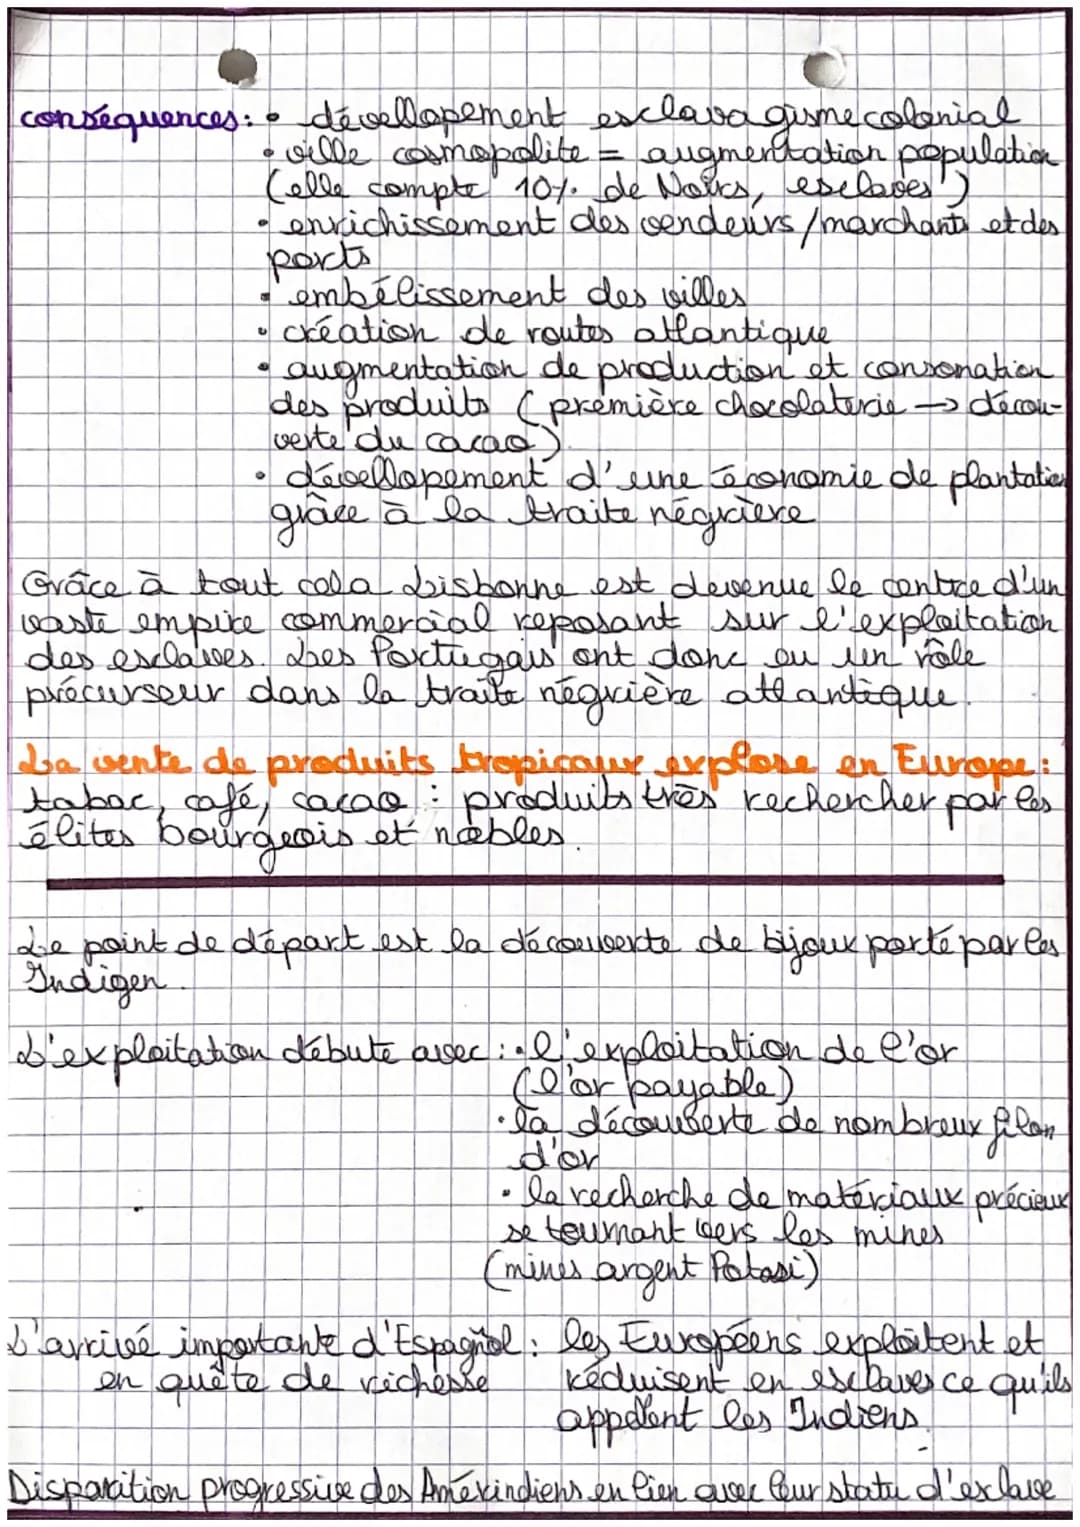 conséquences: • dévellopement esclavagisme colonial
• ville cosmopolite = augmentation population
(elle compte 10% de Noirs, esclaves)
• enrichissement des vendeurs / marchants et des
ports
• embélissement des villes
• création de routes atlantique
• augmentation de production et consonation
des produits (première chocolaterie → décou-
verte du cacao)
• dévellopement d'une économie de plantation
grâce à la traite négrière
Grâce à tout cela Lisbonne est devenue le centre d'un
vaste empire commercial reposant sur l'exploitation
des esclaves. Les Portugais ont donc eu un rôle
précurseur dans la traite négrière atlantique.
La vente de produits tropicaux explose en Europe :
tabac, café, cacao : produits très rechercher par les
élites bourgeois et nobles.
Le point de départ est la découverte de bijoux porté par les
Indigen.
L'exploitation débute avec : • l'exploitation de l'or
(l'or payable)
• la découverte de nombreux filon
d'or
• la recherche de matériaux précieux
se tournant vers les mines
(mines argent Potosi)
L'arrivé importante d'Espagñol : les Européens exploitent et
en quête de richesse réduisent en esclaves ce qu'ils
appelent les Indiens.
Disparition progressive des Amérindiens en lien avec leur statu d'esclave